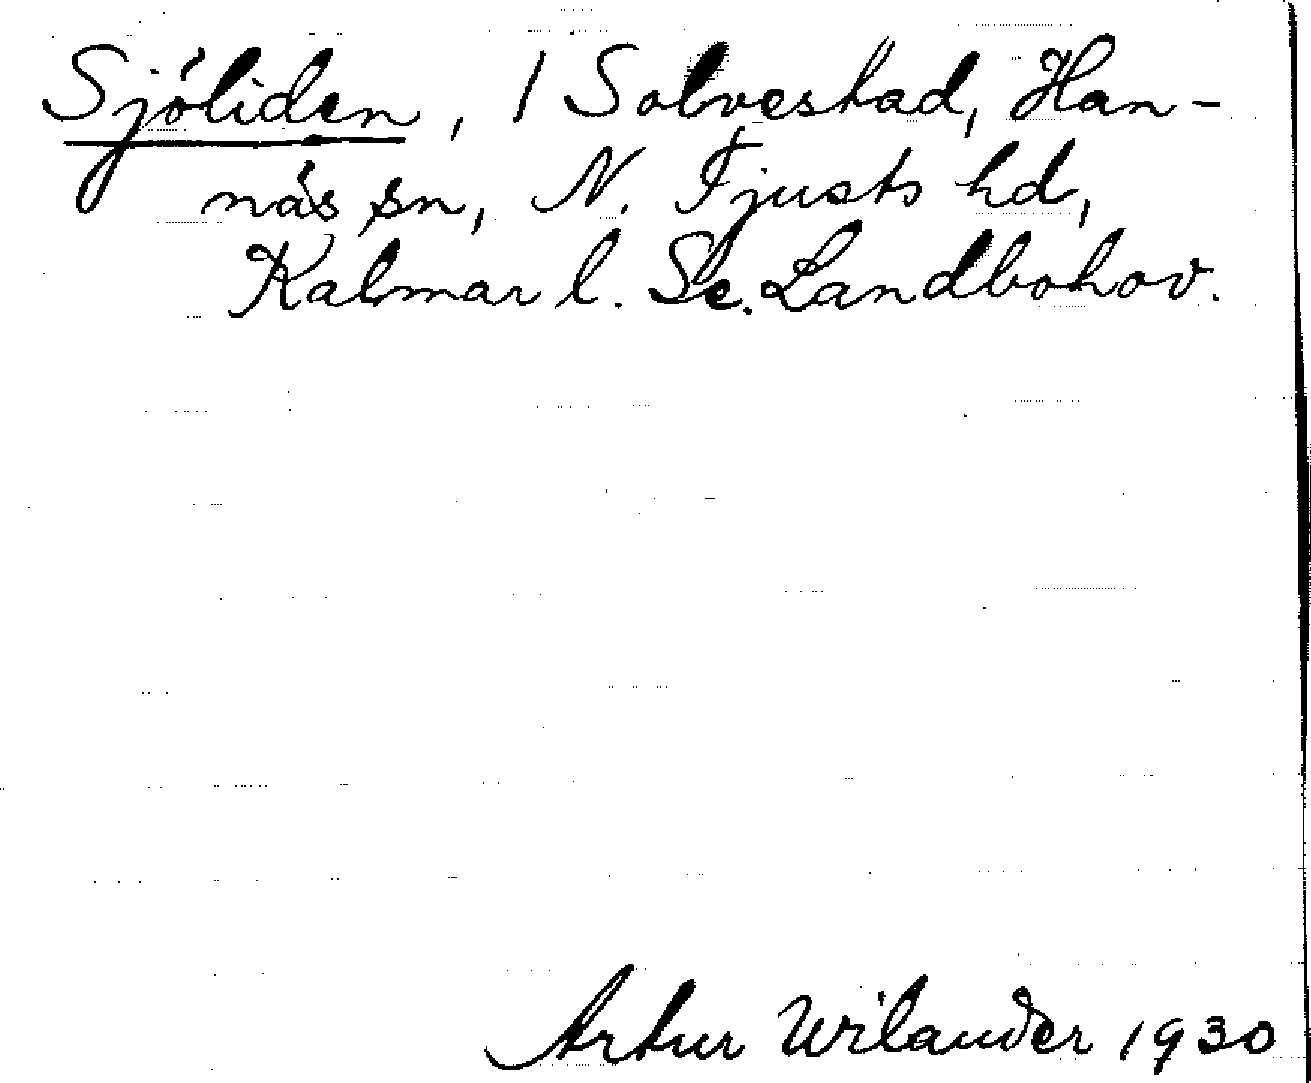 Sjöliden, 1 Solvestad, Han-
näs sn, N. Tjusts hd,
Kalmar l. Se. Landbohov.
Artur Wilander 1930